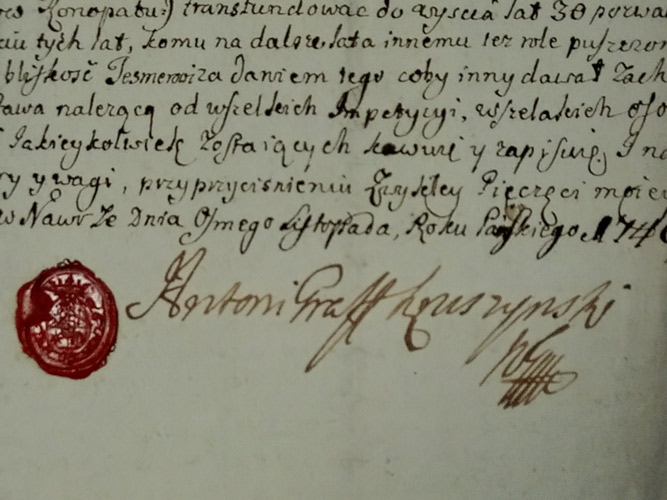 Konopatu:) transfundować do wyscia lat 30
tych lat, komu na dalsze lata innemu też role
bliskość Jesmewiza daniem tego coby inny dawał
należącą od wszelkich Impetycyi, wszelakich
Jakieykolwiek zostaiących
y wagi, przy przyciśnieniu Zwykłey Pieczęci moiey
w Nawrze Dnia Osmego Listopada, Roku Pańskiego 174
Antoni Graff Kruszynski